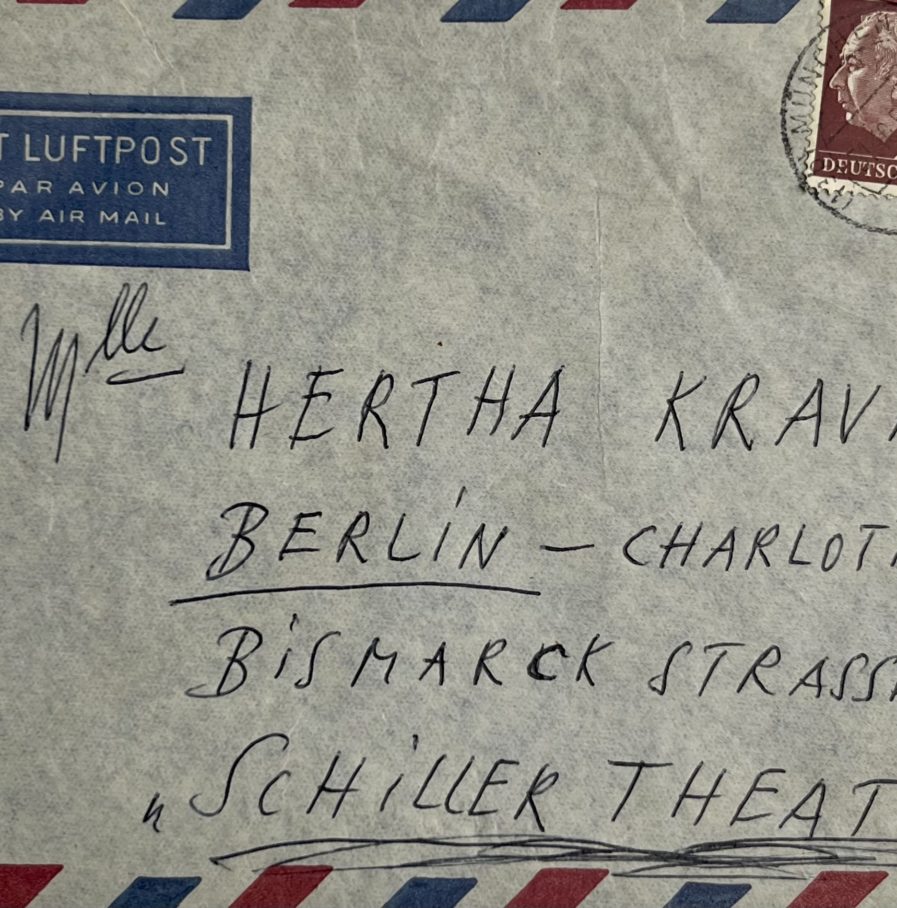 T LUFTPOST
PAR AVION
BY AIR MAIL
MÜN
DEUTSC
Mlle HERTHA KRAV
BERLiN – CHARLOT
BiSMARCK STRASS
„SCHiLLER THEAT